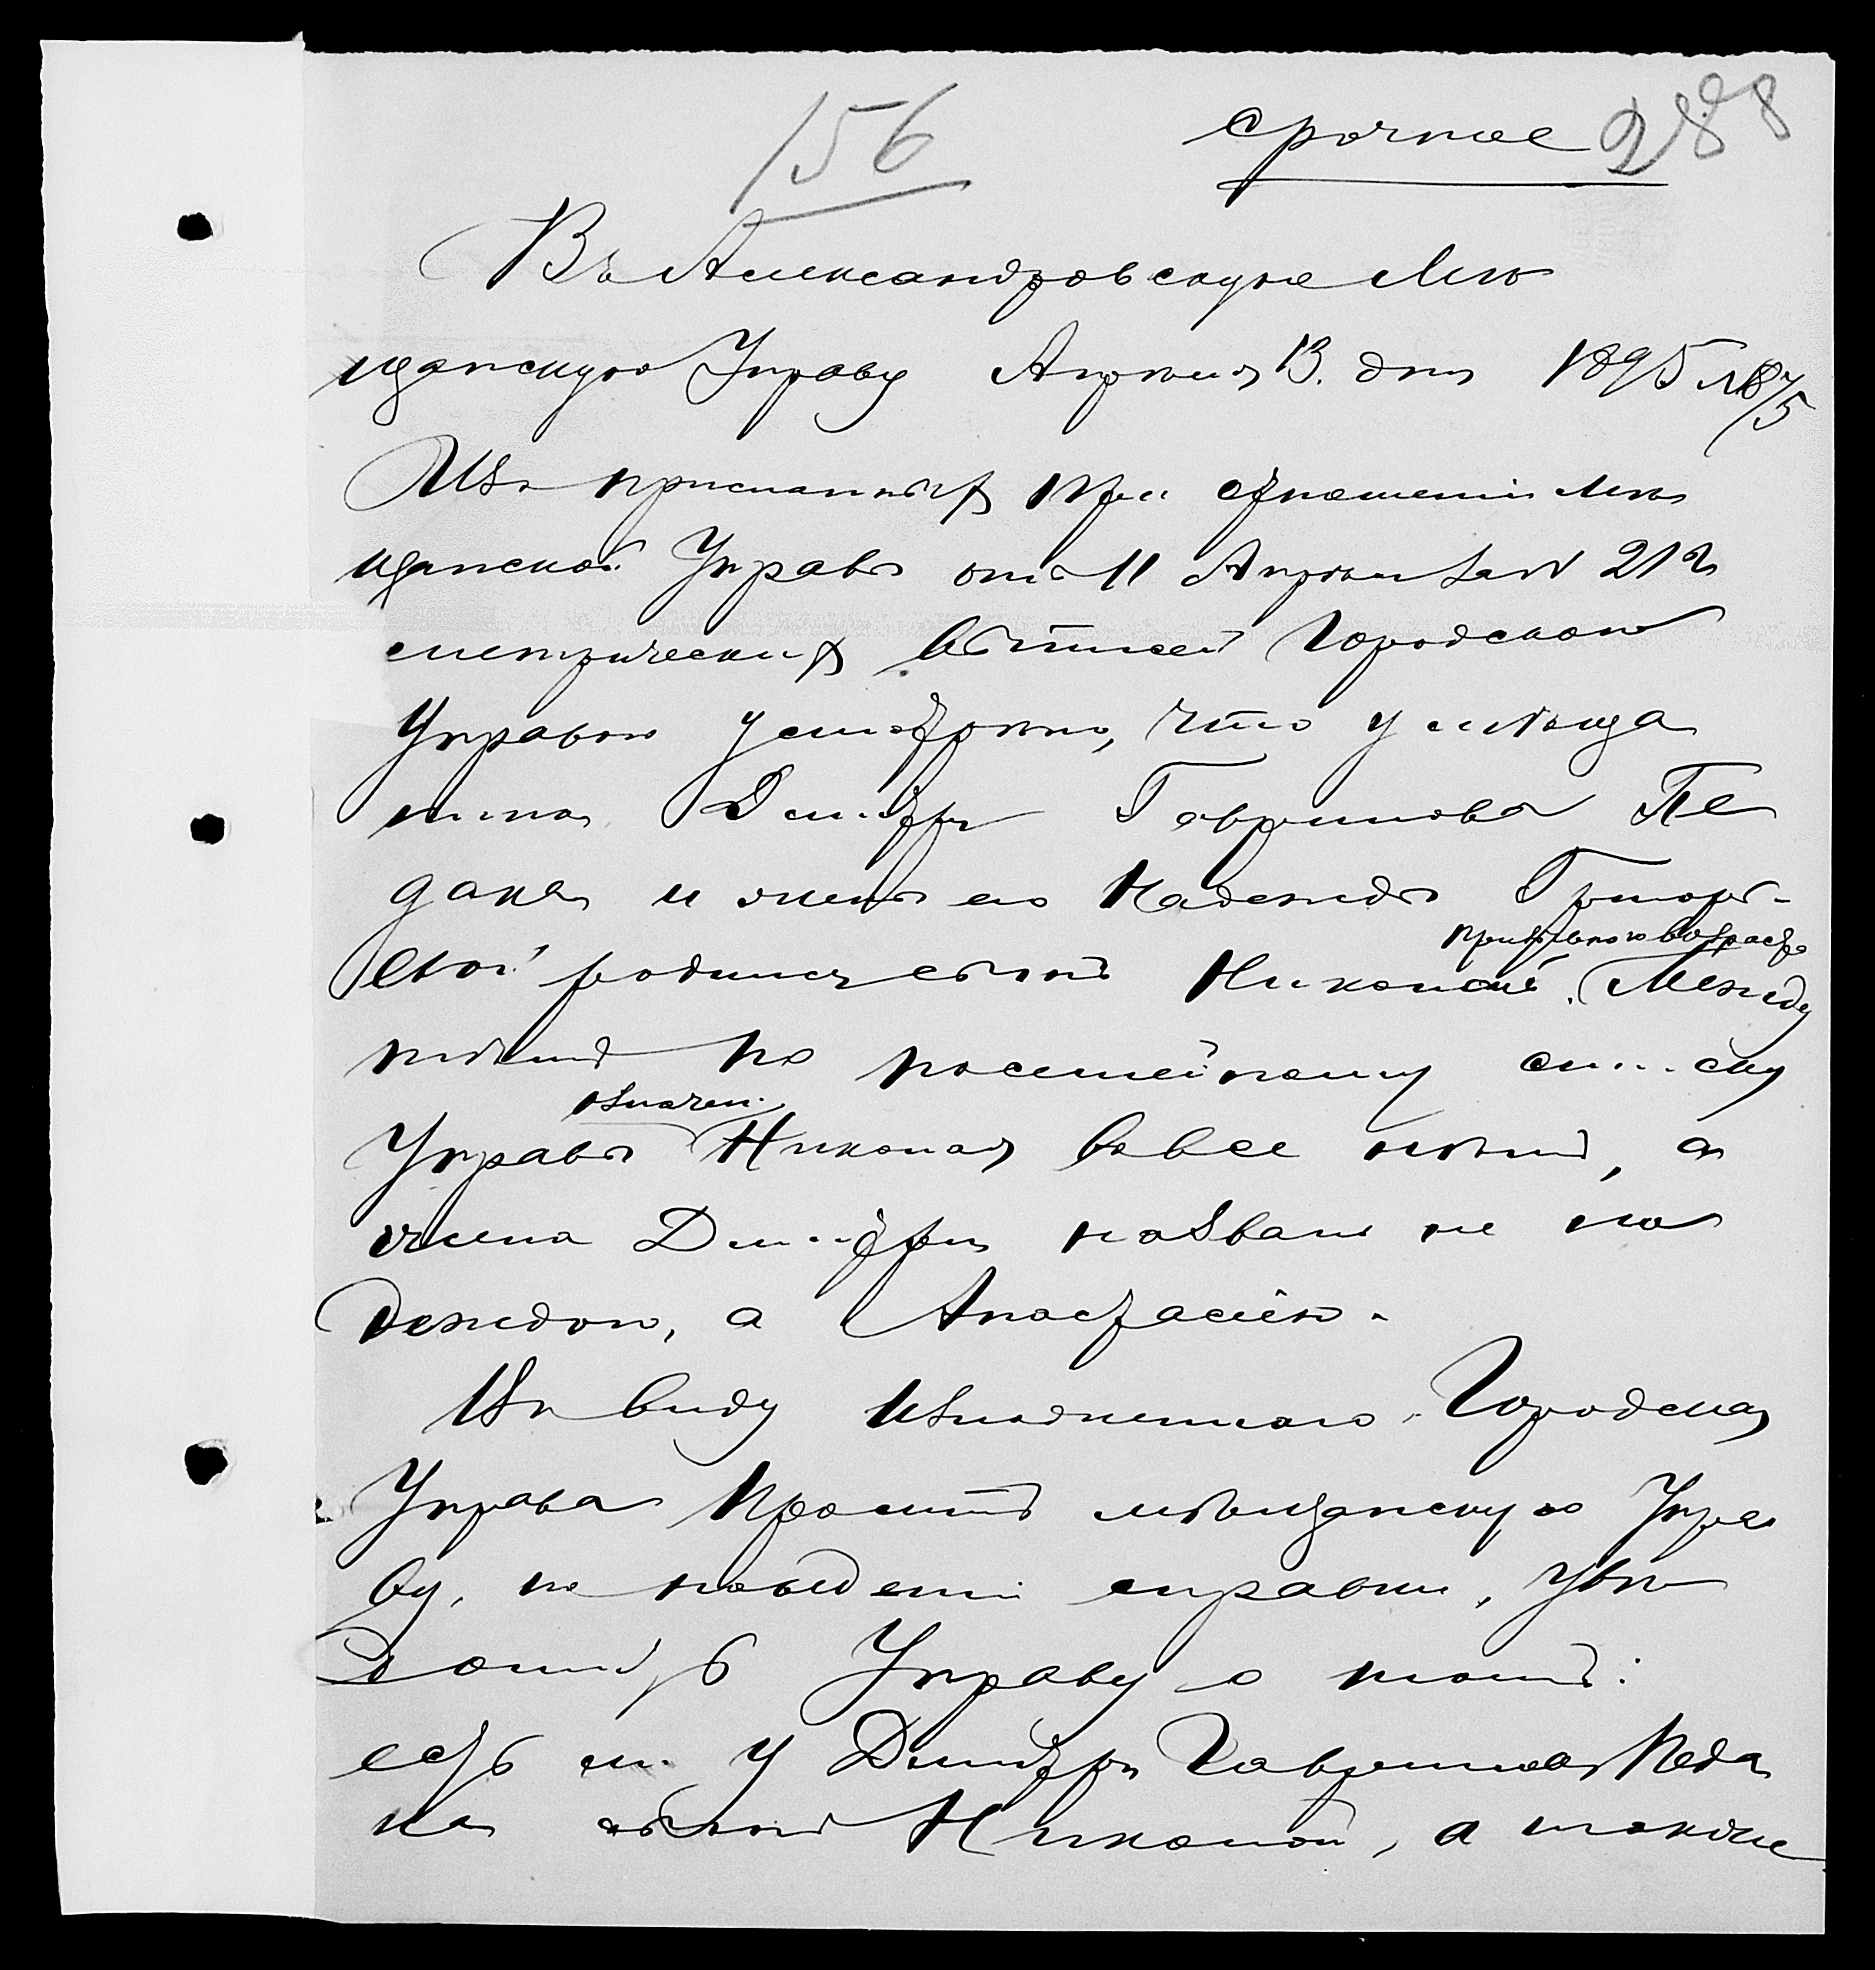 156
срочное 288
Въ Александровскую Мѣ
щанскую Управу Апрѣля 13. дня 1895 № 875
Изъ присланныхъ при отношеніи Мѣ
щанской Управы отъ 11 Апрѣля за № 212
метрическихъ выписей Городскою
Управою усмотрѣно, что у мѣща
нина Дмитрія Гаврилова Пе
дака и жены его Надежды Григорь-
призывного возраста
евой родился сынъ Николай. Между
тѣмъ по посемейному списку
означен.
Управы Николая вовсе нѣтъ, а
жена Дмитрія названа не На
деждою, а Анастасіею.
Въ виду изложеннаго Городская
Управа проситъ мѣщанскую Упра
ву, по наведеніи справки, увѣ
домить Управу о томъ:
есть ли у Дмитрія Гаврилова Педа
ка сынъ Николай, а также